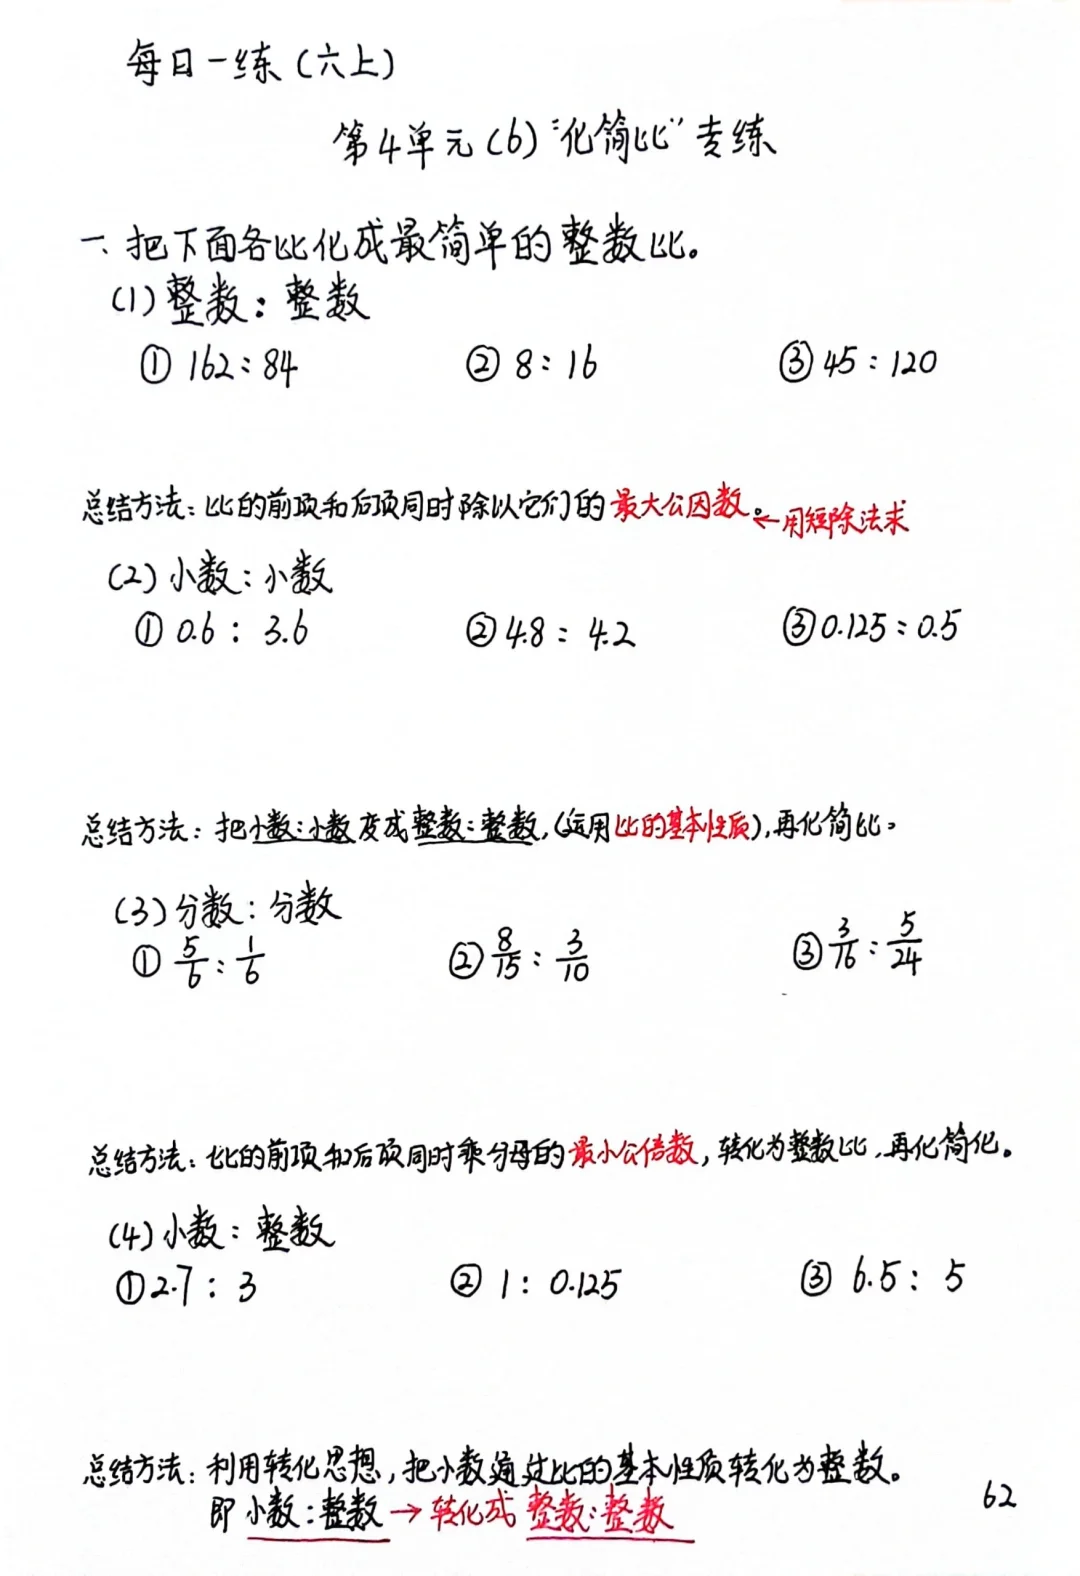 每日一练(六上)
第4单元(6)“化简比”专练
一、把下面各比化成最简单的整数比。
(1)整数:整数
① 162:84 ② 8:16 ③ 45:120
总结方法:比的前项和后项同时除以它们的最大公因数。←用短除法求
(2)小数:小数
① 0.6:3.6 ② 4.8:4.2 ③ 0.125:0.5
总结方法:把小数:小数变成整数:整数,(运用比的基本性质),再化简比。
(3)分数:分数
① 5/6:1/6 ② 8/15:3/10 ③ 3/16:5/24
总结方法:比的前项和后项同时乘分母的最小公倍数,转化为整数比,再化简化。
(4)小数:整数
① 2.7:3 ② 1:0.125 ③ 6.5:5
总结方法:利用转化思想,把小数通过比的基本性质转化为整数。
即小数:整数→转化成整数:整数
62